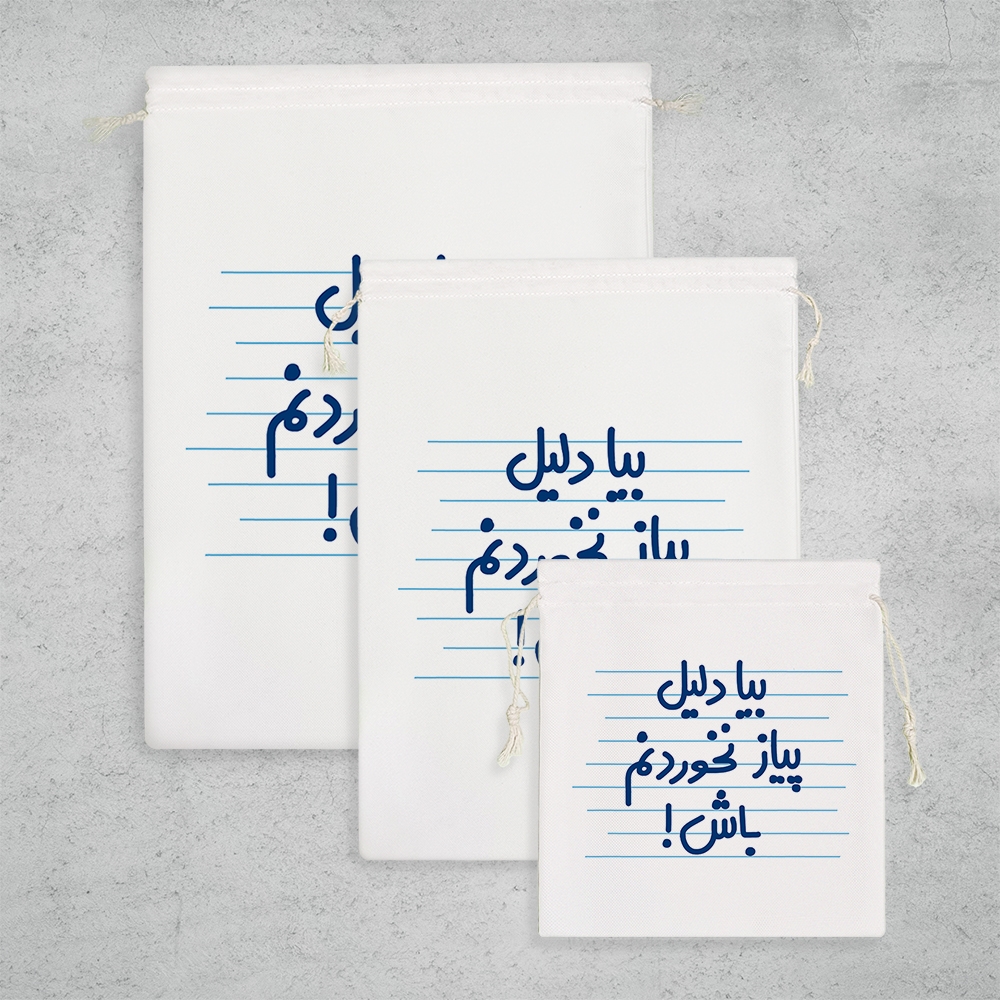 بیا دلیل
پیاز نخوردنم
!
بیا دلیل
پیاز نخوردنم
باش!